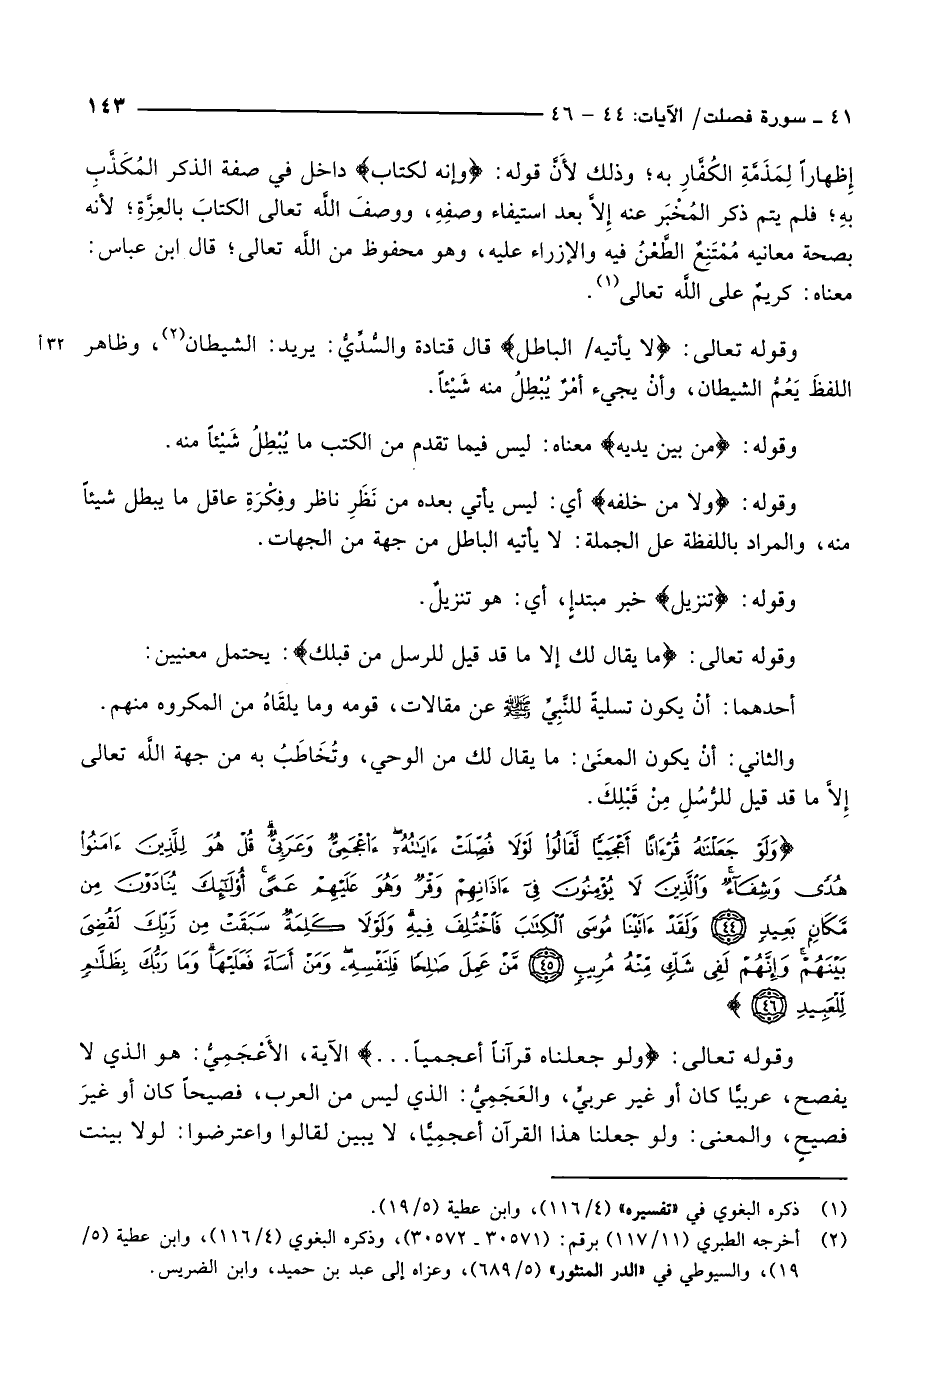 ٤١ ـ سورة فصلت/ الآيات: ٤٤ – ٤٦ ١٤٣
إظهاراً لِمَذَمَّةِ الكُفَّارِ به؛ وذلك لأَنَّ قوله: ﴿وإنه لكتاب﴾ داخل في صفة الذكر المُكَذَّبِ
بهِ؛ فلم يتم ذكر المُخْبَر عنه إِلاَّ بعد استيفاء وصفِهِ، ووصفَ اللَّه تعالى الكتابَ بالعِزَّةِ؛ لأنه
بصحة معانيه مُمْتَنِعٌ الطَّعْنُ فيه والإزراء عليه، وهو محفوظ من اللَّه تعالى؛ قال ابن عباس:
معناه: كريمٌ على اللَّه تعالى(١).
وقوله تعالى: ﴿لا يأتيه/ الباطل﴾ قال قتادة والسُّدِّيُّ: يريد: الشيطان(٢)، وظاهر ٣٢ أ
اللفظَ يَعُمُّ الشيطان، وأنْ يجيء أمْرٌ يُبْطِلُ منه شَيْئاً.
وقوله: ﴿من بين يديه﴾ معناه: ليس فيما تقدم من الكتب ما يُبْطِلُ شَيْئاً منه.
وقوله: ﴿ولا من خلفه﴾ أي: ليس يأتي بعده من نَظَرِ ناظر وفِكْرَةِ عاقل ما يبطل شيئاً
منه، والمراد باللفظة عل الجملة: لا يأتيه الباطل من جهة من الجهات.
وقوله: ﴿تنزيل﴾ خبر مبتدإٍ، أي: هو تنزيلٌ.
وقوله تعالى: ﴿ما يقال لك إلا ما قد قيل للرسل من قبلك﴾: يحتمل معنيين:
أحدهما: أنْ يكون تسليةً للنَّبِيِّ ﷺ عن مقالات، قومه وما يلقَاهُ من المكروه منهم.
والثاني: أنْ يكون المعنَىٰ: ما يقال لك من الوحي، وتُخَاطَبُ به من جهة اللَّه تعالى
إِلاَّ ما قد قيل للرُّسُلِ مِنْ قَبْلِكَ.
﴿وَلَوْ جَعَلْنَٰهُ قُرْءَانًا أَعْجَمِيًّا لَّقَالُوا۟ لَوْلَا فُصِّلَتْ ءَايَٰتُهُۥٓ ءَا۬عْجَمِىٌّ وَعَرَبِىٌّ قُلْ هُوَ لِلَّذِينَ ءَامَنُوا۟
هُدًى وَشِفَآءٌ وَٱلَّذِينَ لَا يُؤْمِنُونَ فِىٓ ءَاذَانِهِمْ وَقْرٌ وَهُوَ عَلَيْهِمْ عَمًى أُو۟لَٰٓئِكَ يُنَادَوْنَ مِن
مَّكَانٍۭ بَعِيدٍ ٤٤ وَلَقَدْ ءَاتَيْنَا مُوسَى ٱلْكِتَٰبَ فَٱخْتُلِفَ فِيهِ وَلَوْلَا كَلِمَةٌ سَبَقَتْ مِن رَّبِّكَ لَقُضِىَ
بَيْنَهُمْ وَإِنَّهُمْ لَفِى شَكٍّ مِّنْهُ مُرِيبٍ ٤٥ مَّنْ عَمِلَ صَٰلِحًا فَلِنَفْسِهِۦ وَمَنْ أَسَآءَ فَعَلَيْهَا وَمَا رَبُّكَ بِظَلَّٰمٍ
لِّلْعَبِيدِ ٤٦﴾
وقوله تعالى: ﴿ولو جعلناه قرآناً أعجمياً...﴾ الآية، الأَعْجَمِيُّ: هو الذي لا
يفصح، عربيًّا كان أو غير عربيٍّ، والعَجَمِيُّ: الذي ليس من العرب، فصيحاً كان أو غيرَ
فصيحٍ، والمعنى: ولو جعلنا هذا القرآن أعجميًّا، لا يبين لقالوا واعترضوا: لولا بينت
(١) ذكره البغوي في «تفسيره» (١١٦/٤)، وابن عطية (١٩/٥).
(٢) أخرجه الطبري (١١٧/١١) برقم: (٣٠٥٧١ ـ ٣٠٥٧٢)، وذكره البغوي (١١٦/٤)، وابن عطية (٥/
١٩)، والسيوطي في «الدر المنثور» (٦٨٩/٥)، وعزاه إلى عبد بن حميد، وابن الضريس.